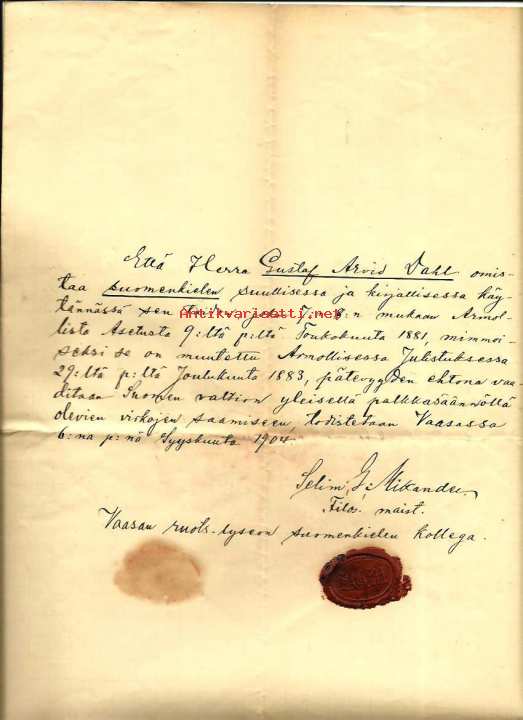 Että Herra Gustaf Arvid Dahl omis-
taa suomenkielen suullisessa ja kirjallisessa käy-
tännässä sen taidon, jota 8:n mukaan Armol-
lista Asetusta 9:ltä p:ltä Toukokuuta 1881, minmoi-
seksi se on muutettu Armollisessa Julistuksessa
29:ltä p:ltä Joulukuuta 1883, pätevyyden ehtona vaa-
ditaan Suomen valtion yleisellä palkkasäännöllä
olevien virkojen saamiseen, todistetaan Vaasassa
6:na p:nä Syyskuuta 1904.
Selim G. Mikander.
Filos. maist.
Vaasan ruots. lyseon suomenkielen kollega.
Antikvariaatti.net
Antikvariaatti.net